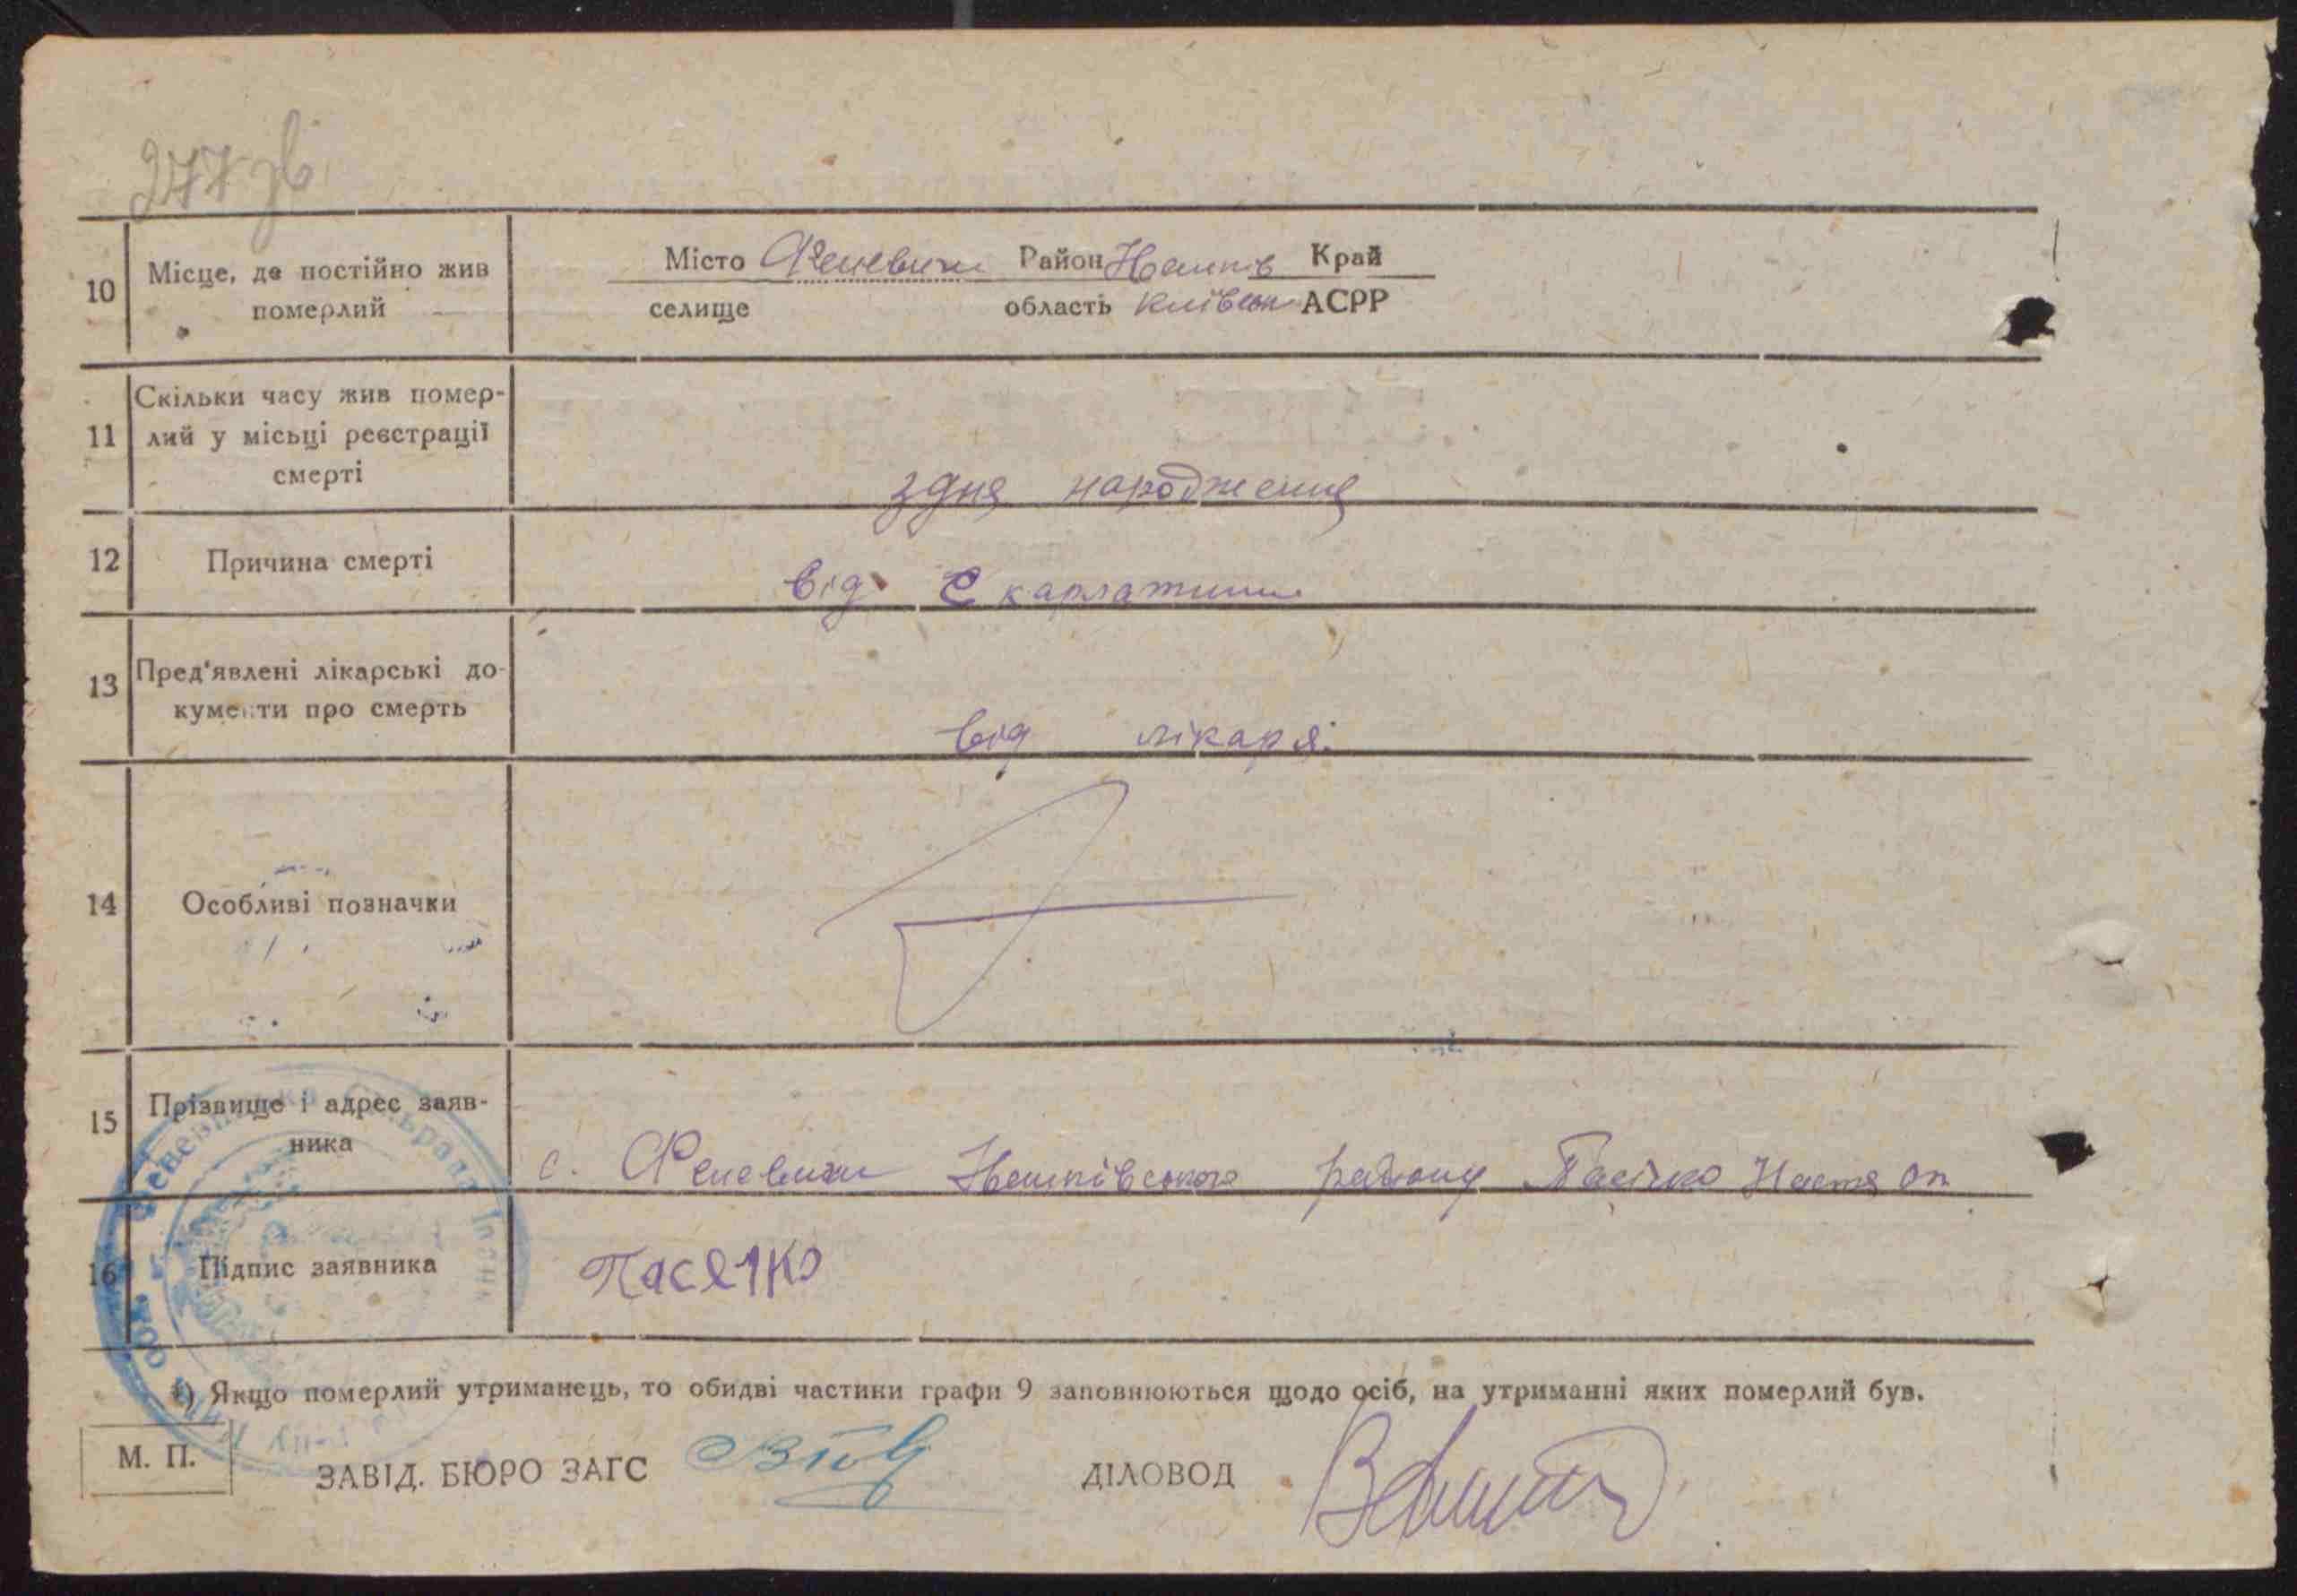 277 зв.
10 Місце, де постійно жив померлий
Місто Феневичи Район Іванків Край
селище область Київськ АСРР
11 Скільки часу жив помер-
лий у місьці реєстрації
смерті
з дня народження
12 Причина смерті
від Скарлатини
13 Пред'явлені лікарські до-
кументи про смерть
від лікаря.
14 Особливі позначки
15 Прізвище і адрес заяв-
ника
с. Феневичи Іванківського району Пасічко Настя Оп
16 Підпис заявника
Пасечко
*) Якщо померлий утриманець, то обидві частини графи 9 заповнюються щодо осіб, на утриманні яких померлий був.
М. П.
ЗАВІД. БЮРО ЗАГС ДІЛОВОД